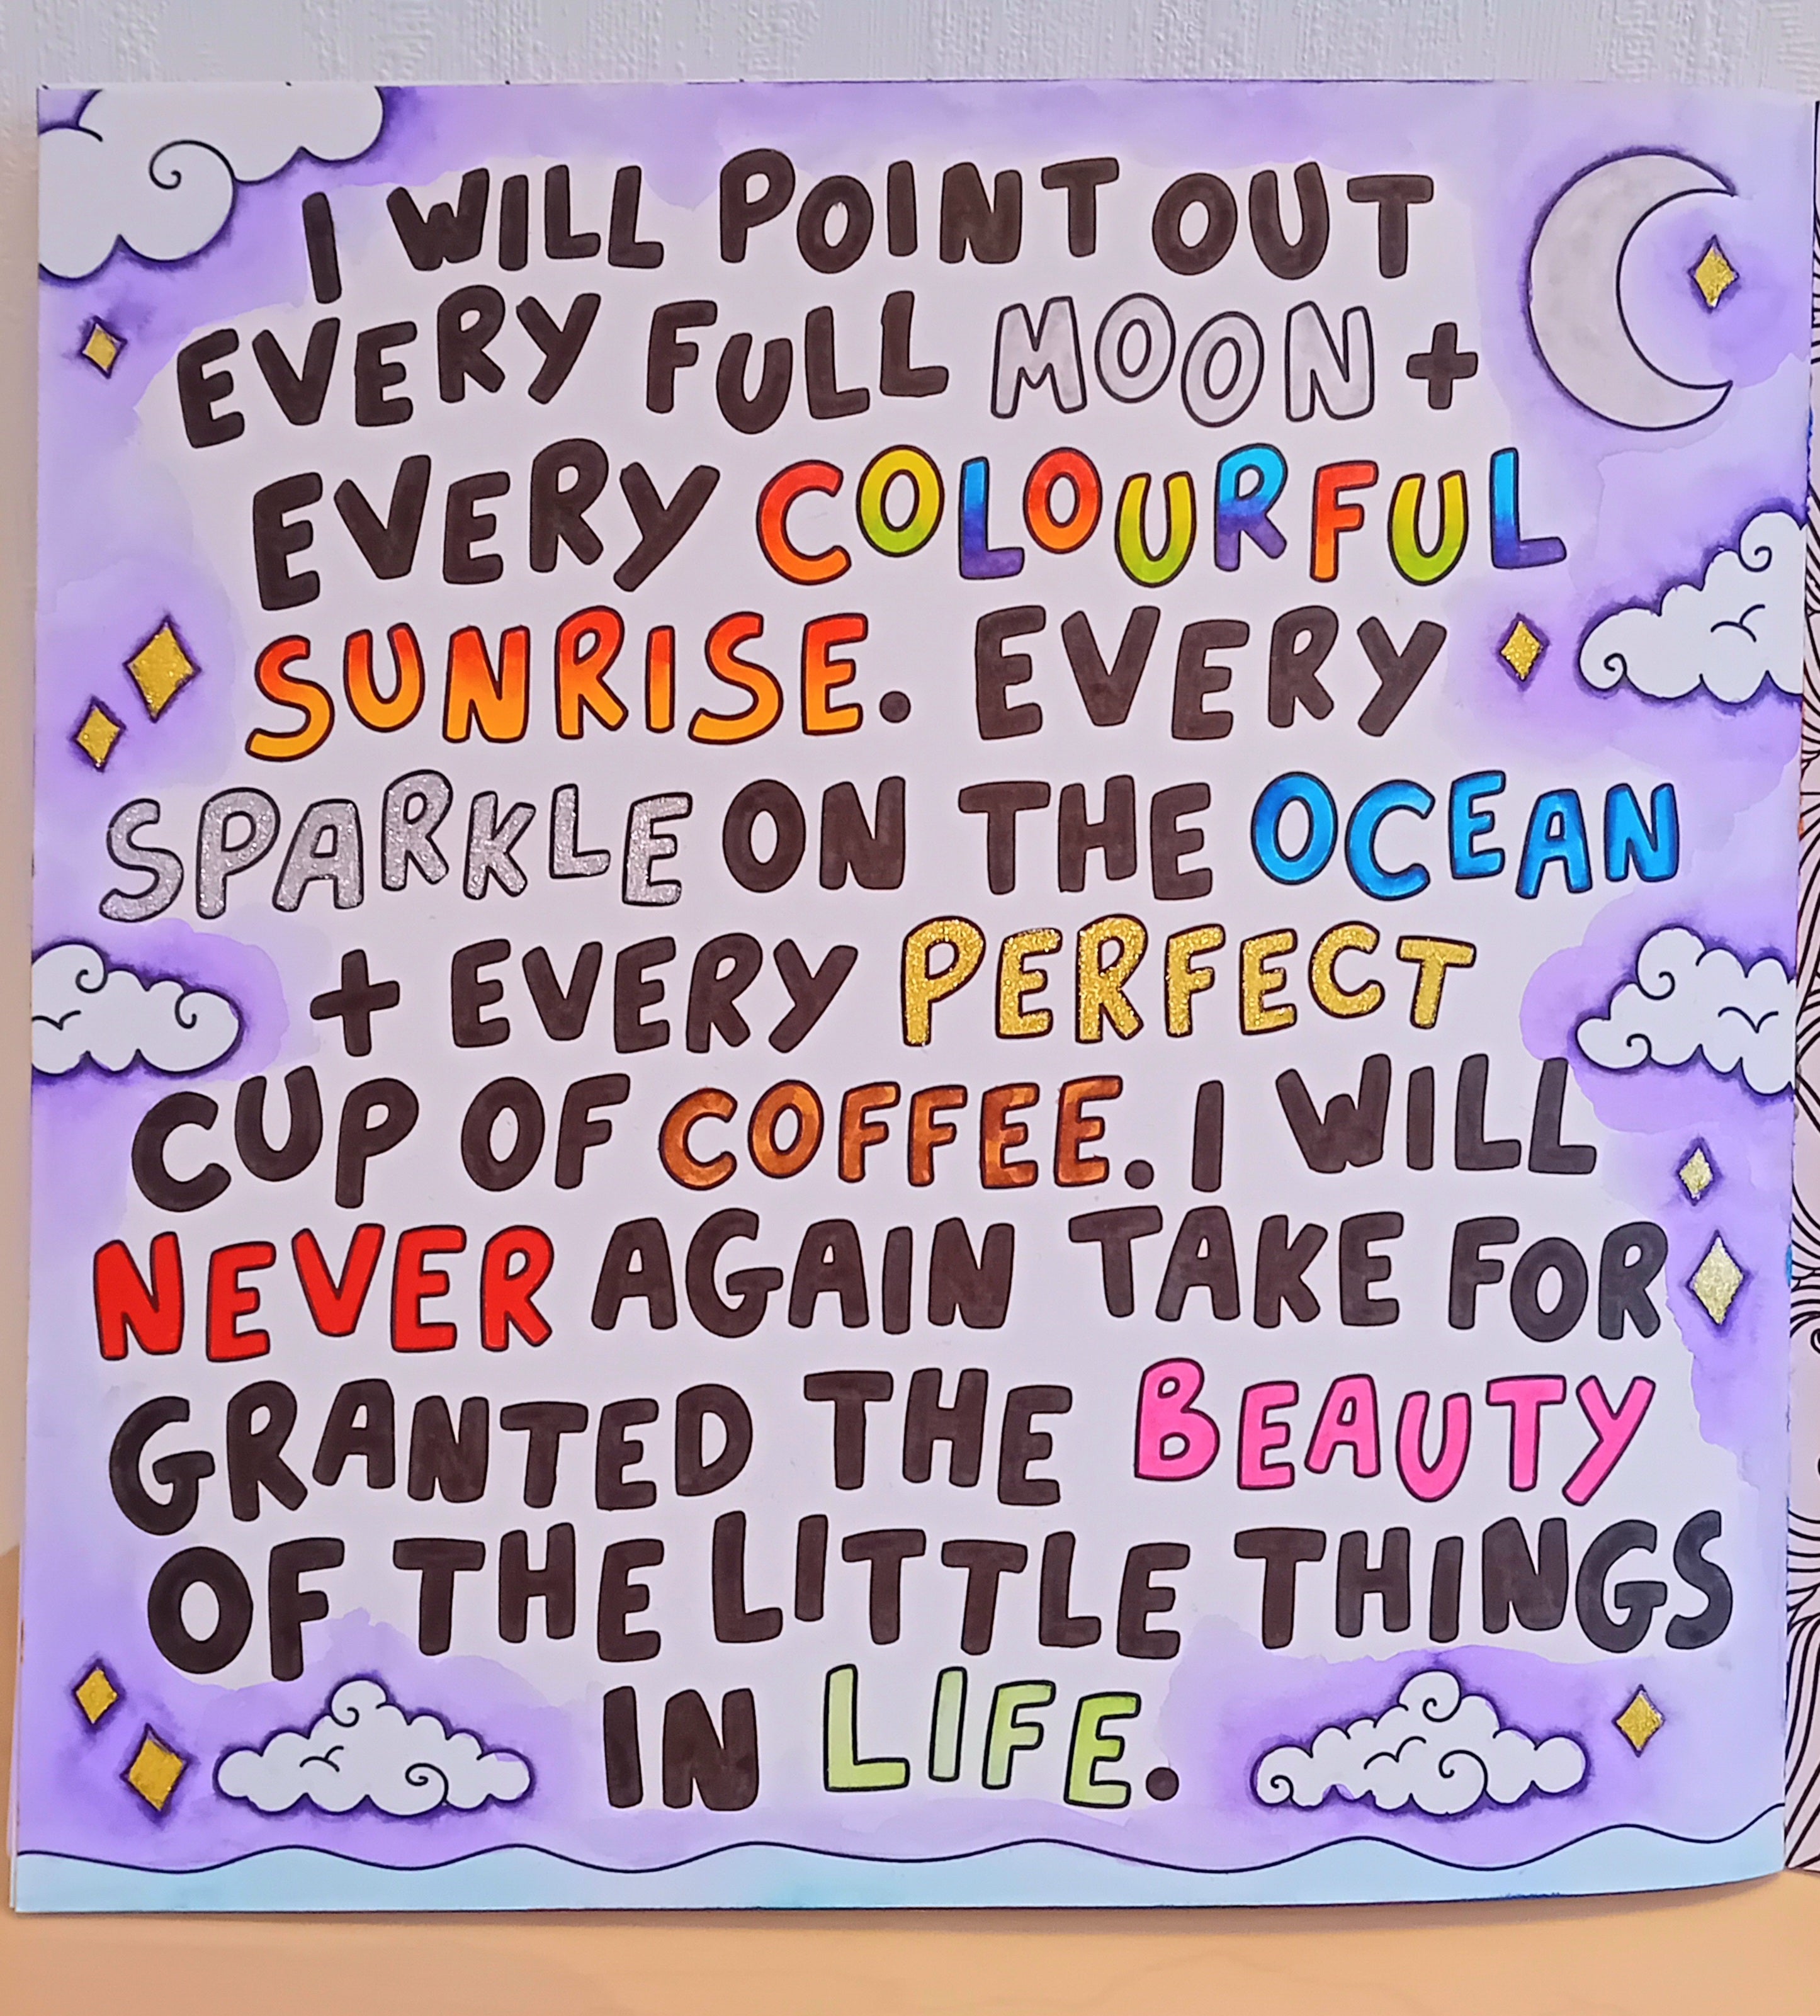 I WILL POINT OUT
EVERY FULL MOON +
EVERY COLOURFUL
SUNRISE. EVERY
SPARKLE ON THE OCEAN
+ EVERY PERFECT
CUP OF COFFEE. I WILL
NEVER AGAIN TAKE FOR
GRANTED THE BEAUTY
OF THE LITTLE THINGS
IN LIFE.